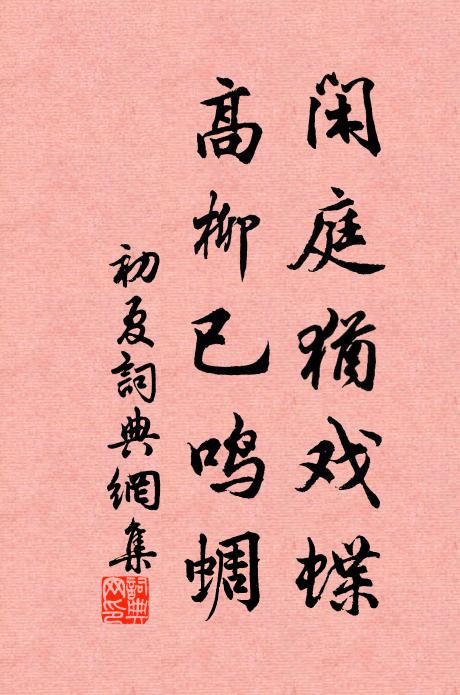 闲庭犹戏蝶
高柳已鸣蜩
初夏詞典網集
詞典网印